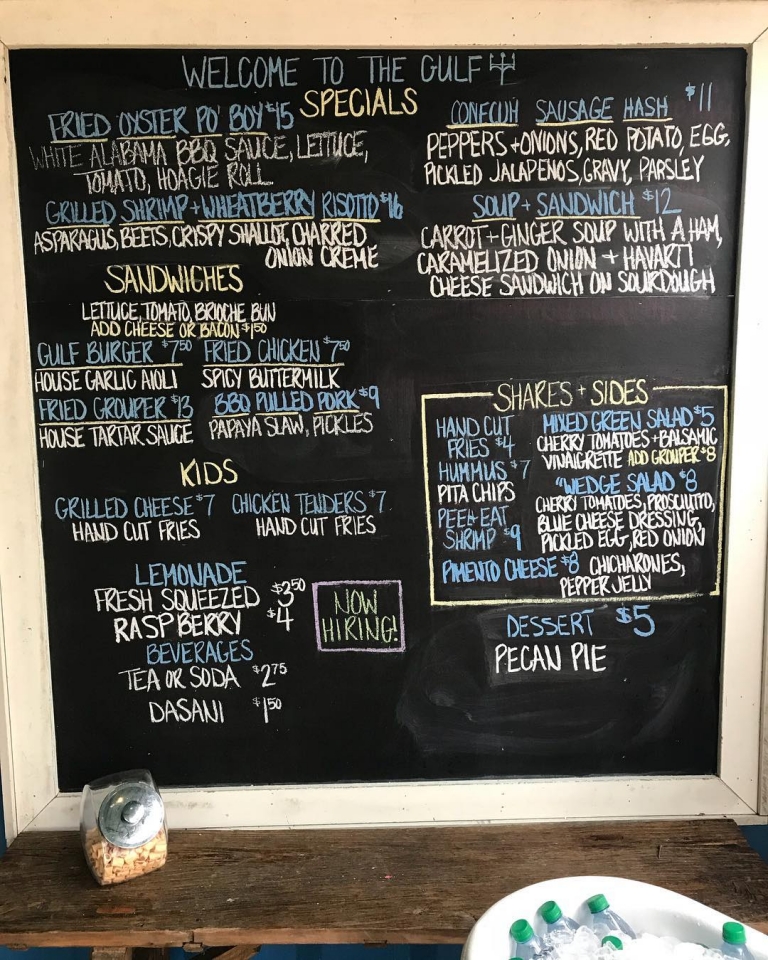 WELCOME TO THE GULF
SPECIALS
FRIED OYSTER PO' BOY $15
WHITE ALABAMA BBQ SAUCE, LETTUCE,
TOMATO, HOAGIE ROLL
GRILLED SHRIMP + WHEATBERRY RISOTTO $16
ASPARAGUS, BEETS, CRISPY SHALLOT, CHARRED
ONION CREME
CONECUH SAUSAGE HASH $11
PEPPERS + ONIONS, RED POTATO, EGG,
PICKLED JALAPENOS, GRAVY, PARSLEY
SOUP + SANDWICH $12
CARROT + GINGER SOUP WITH A HAM,
CARAMELIZED ONION + HAVARTI
CHEESE SANDWICH ON SOURDOUGH
SANDWICHES
LETTUCE, TOMATO, BRIOCHE BUN
ADD CHEESE OR BACON $1.50
GULF BURGER $7.50
HOUSE GARLIC AIOLI
FRIED CHICKEN $7.50
SPICY BUTTERMILK
FRIED GROUPER $13
HOUSE TARTAR SAUCE
BBQ PULLED PORK $9
PAPAYA SLAW, PICKLES
KIDS
GRILLED CHEESE $7
HAND CUT FRIES
CHICKEN TENDERS $7
HAND CUT FRIES
LEMONADE
FRESH SQUEEZED $3.50
RASPBERRY $4
BEVERAGES
TEA OR SODA $2.75
DASANI $1.50
NOW
HIRING!
SHARES + SIDES
HAND CUT
FRIES $4
HUMMUS $7
PITA CHIPS
PEEL + EAT
SHRIMP $9
MIXED GREEN SALAD $5
CHERRY TOMATOES + BALSAMIC
VINAIGRETTE ADD GROUPER $8
"WEDGE SALAD $8
CHERRY TOMATOES, PROSCIUTTO,
BLUE CHEESE DRESSING,
PICKLED EGG, RED ONION
PIMENTO CHEESE $8 CHICHARONES,
PEPPER JELLY
DESSERT $5
PECAN PIE